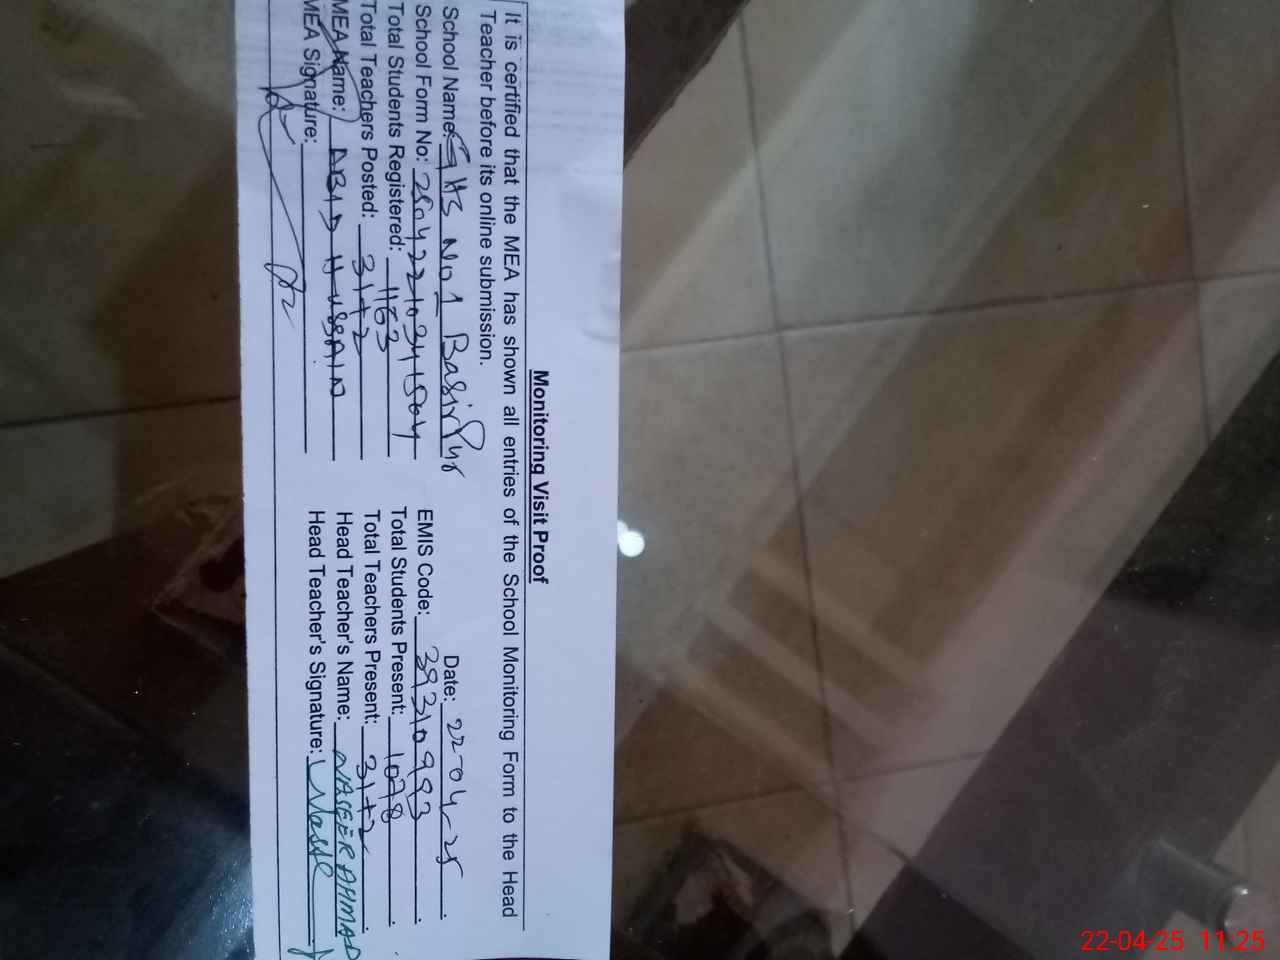 Monitoring Visit Proof
It is certified that the MEA has shown all entries of the School Monitoring Form to the Head
Teacher before its online submission.
School Name: GHS NO1 Basirpur Date: 22-04-25
School Form No: 25042210341504 EMIS Code: 39310993
Total Students Registered: 1163 Total Students Present: 1078
Total Teachers Posted: 31+2 Total Teachers Present: 31+2
MEA Name: ABID HUSSAIN Head Teacher's Name: NASEER AHMAD
MEA Signature: Head Teacher's Signature:
22-04-25 11:25